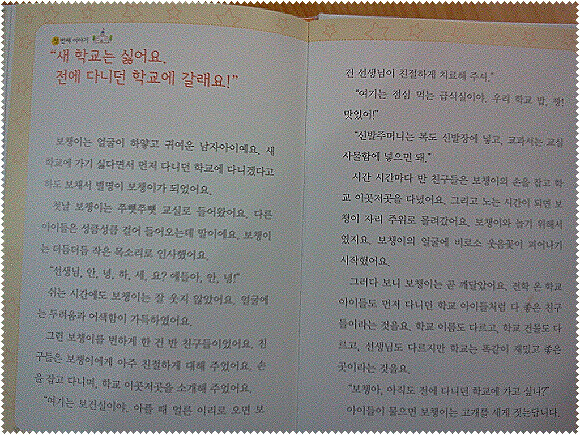 번째 이야기
“새 학교는 싫어요.
전에 다니던 학교에 갈래요!”
보챙이는 얼굴이 하얗고 귀여운 남자아이예요. 새
학교에 가기 싫다면서 먼저 다니던 학교에 다니겠다고
하도 보채서 별명이 보챙이가 되었어요.
첫날 보챙이는 쭈뼛쭈뼛 교실로 들어왔어요. 다른
아이들은 성큼성큼 걸어 들어오는데 말이에요. 보챙이
는 더듬더듬 작은 목소리로 인사했어요.
“선생님, 안, 녕, 하, 세, 요? 얘들아, 안, 녕!”
쉬는 시간에도 보챙이는 잘 웃지 않았어요. 얼굴에
는 두려움과 어색함이 가득하였어요.
그런 보챙이를 변하게 한 건 반 친구들이었어요. 친
구들은 보챙이에게 아주 친절하게 대해 주었어요. 손
을 잡고 다니며, 학교 이곳저곳을 소개해 주었어요.
“여기는 보건실이야. 아플 때 얼른 이리로 오면 보
건 선생님이 친절하게 치료해 주셔.”
“여기는 점심 먹는 급식실이야. 우리 학교 밥, 짱!
맛있어!”
“신발주머니는 복도 신발장에 넣고, 교과서는 교실
사물함에 넣으면 돼.”
시간 시간마다 반 친구들은 보챙이의 손을 잡고 학
교 이곳저곳을 다녔어요. 그리고 노는 시간이 되면 보
챙이 자리 주위로 몰려갔어요. 보챙이와 놀기 위해서
였지요. 보챙이의 얼굴에 비로소 웃음꽃이 피어나기
시작했어요.
그러다 보니 보챙이는 곧 깨달았어요. 전학 온 학교
아이들도 먼저 다니던 학교 아이들처럼 다 좋은 친구
들이라는 것을요. 학교 이름도 다르고, 학교 건물도 다
르고, 선생님도 다르지만 학교는 똑같이 재밌고 좋은
곳이라는 것을요.
“보챙아, 아직도 전에 다니던 학교에 가고 싶니?”
아이들이 물으면 보챙이는 고개를 세게 젓는답니다.